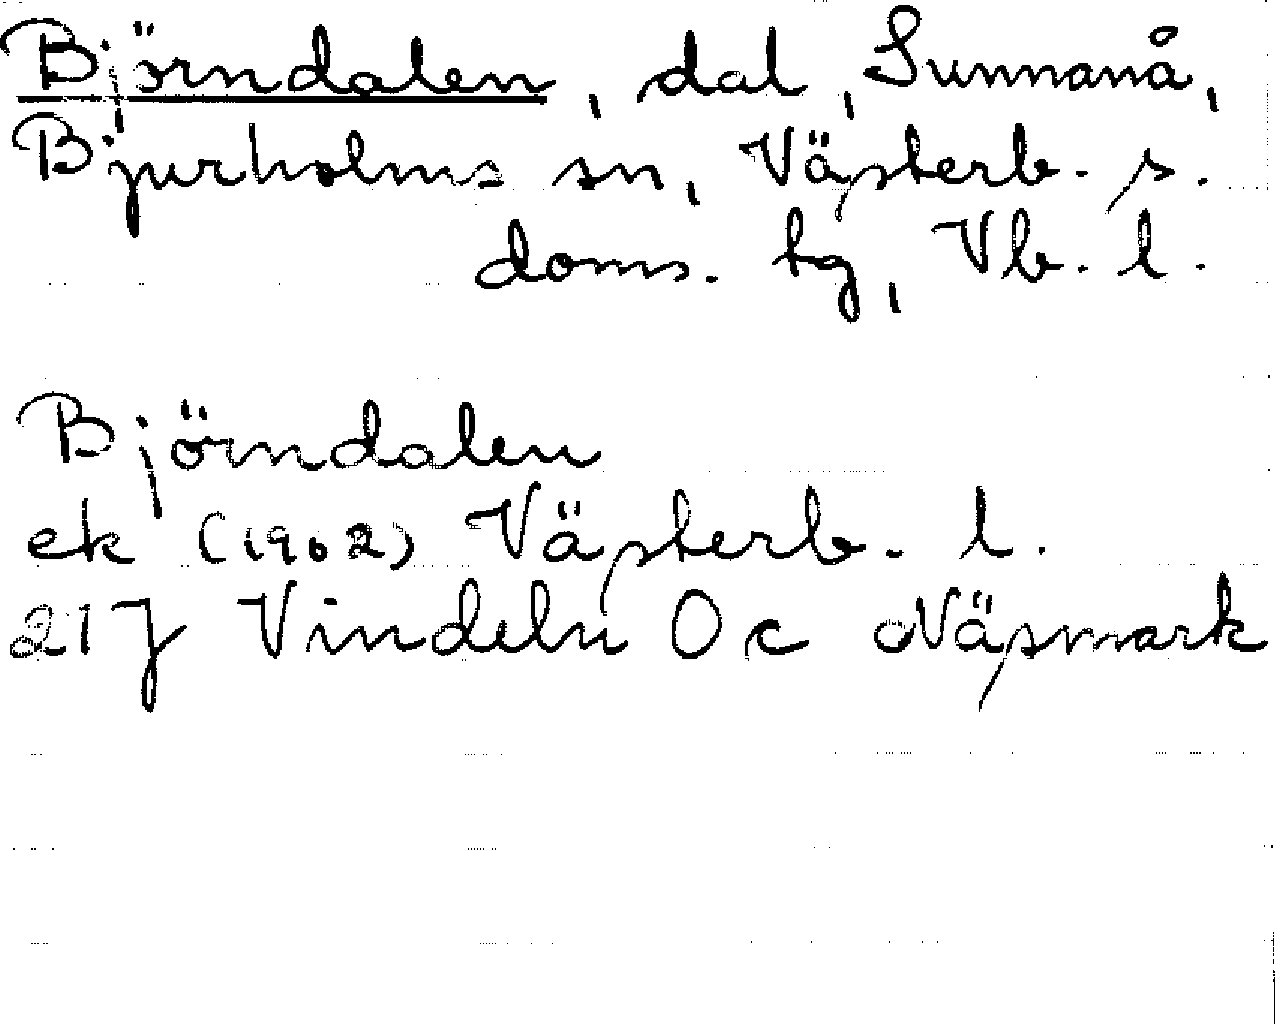 Björndalen, dal, Sunnanå,
Bjurholms sn, Västerb. s.
doms. tg, Vb. l.
Björndalen
ek (1902) Västerb. l.
21 J Vindeln O c Näsmark